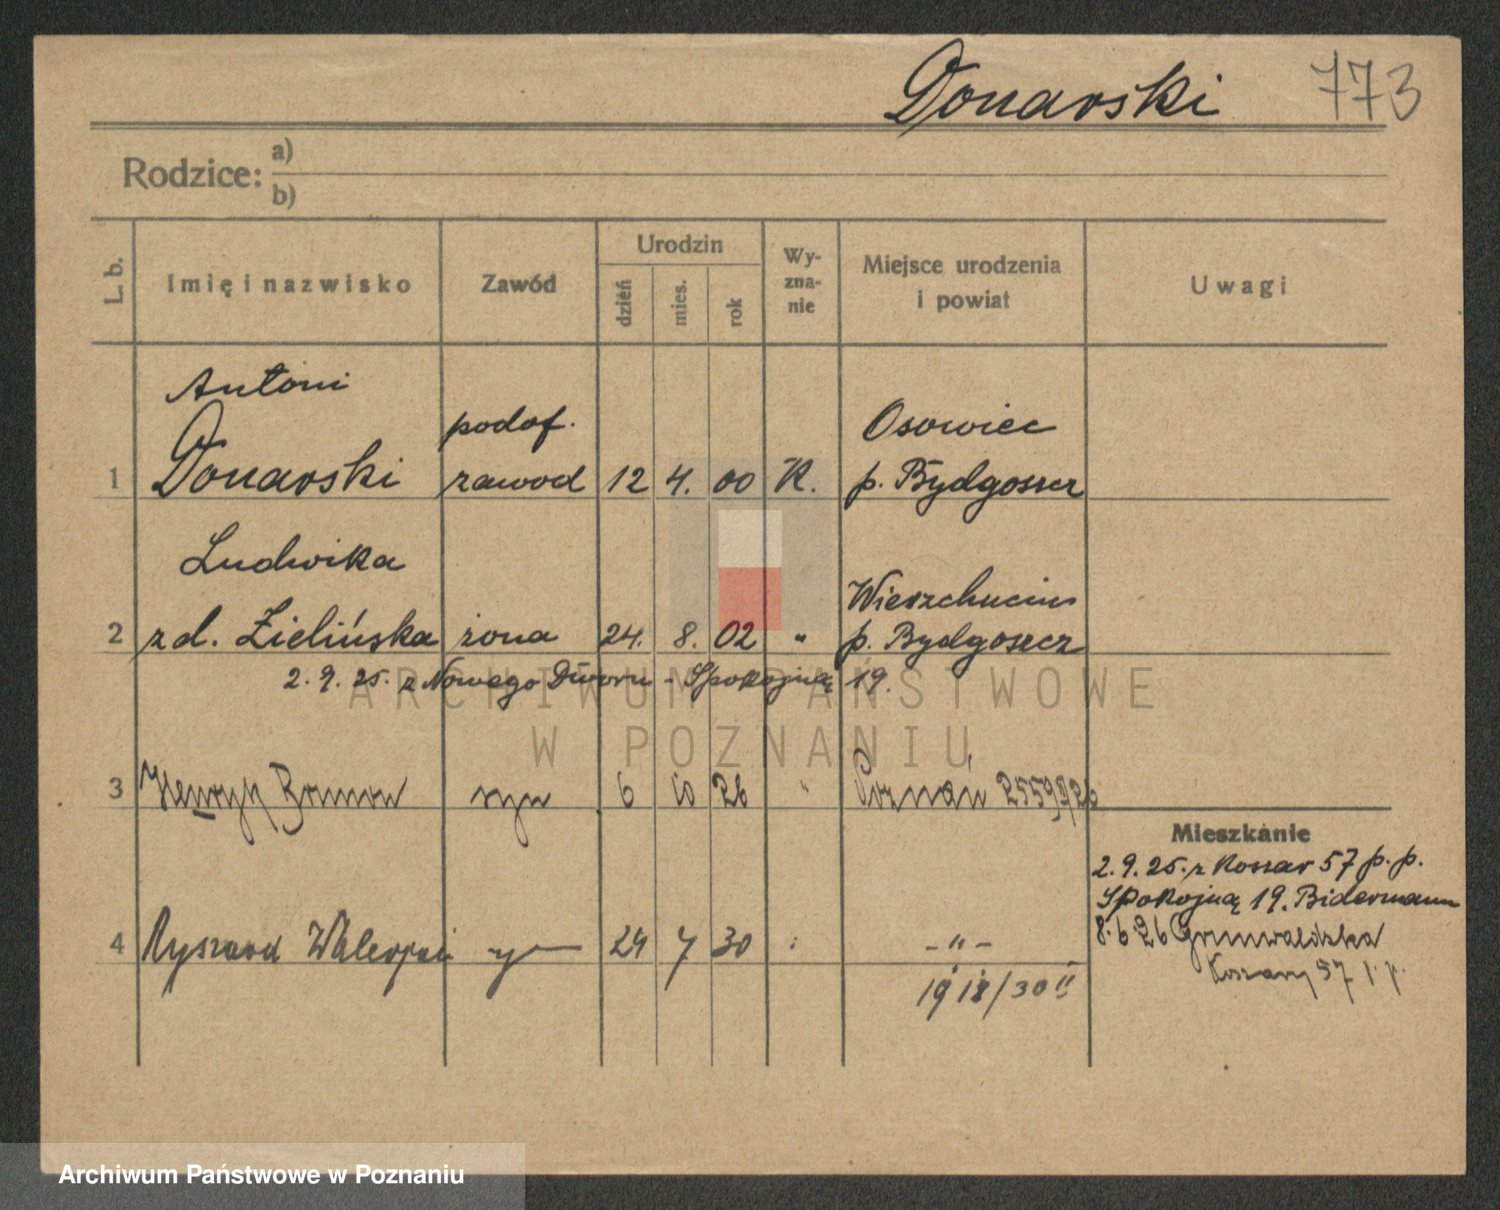 Donarski 773
Rodzice: a)
b)
L. b.
Imię i nazwisko
Zawód
Urodzin
dzień
mies.
rok
Wy-
zna-
nie
Miejsce urodzenia
i powiat
Uwagi
Antoni
podof. Osowiec
1 Donarski zawod 12 4. 00 K. p. Bydgoszcz
Ludwika
Wierzchucin
2 z d. Zielińska żona 24. 8. 02 " p. Bydgoszcz
2.9.25. z Nowego Dworu - Spokojną 19.
3 Henryk syn 6 10 26 " Poznań 2559/26
Mieszkanie
2.9.25. z Koszar 57 p. p.
Spokojną 19. Bidermann
8.6 26 Grunwaldzka
Koszary 57 p. p.
4 Ryszard 24 7 30 -"-
1918/30 II
ARCHIWUM PAŃSTWOWE
W POZNANIU
Archiwum Państwowe w Poznaniu